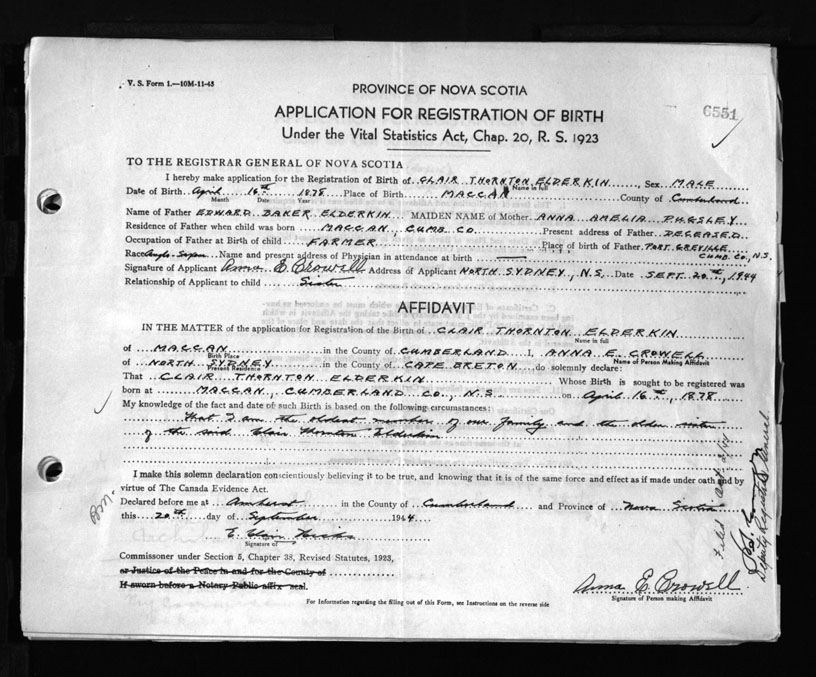 V. S. Form 1.—10M-11-43
PROVINCE OF NOVA SCOTIA
6551
APPLICATION FOR REGISTRATION OF BIRTH
Under the Vital Statistics Act, Chap. 20, R. S. 1923
TO THE REGISTRAR GENERAL OF NOVA SCOTIA
I hereby make application for the Registration of Birth of CLAIR THORNTON ELDERKIN, Sex MALE
Name in full
Date of Birth April 16th 1878 Place of Birth MACCAN County of Cumberland
Month Date Year
Name of Father EDWARD BAKER ELDERKIN MAIDEN NAME of Mother ANNA AMELIA PUGSLEY
Residence of Father when child was born MACCAN, CUMB. CO. Present address of Father DECEASED
Occupation of Father at Birth of child FARMER Place of birth of Father PORT GREVILLE
CUMB. CO., N.S.
Race Anglo-Saxon Name and present address of Physician in attendance at birth
Signature of Applicant Anna E. Crowell Address of Applicant NORTH SYDNEY, N.S. Date SEPT. 20th, 1944
Relationship of Applicant to child Sister
AFFIDAVIT
IN THE MATTER of the application for Registration of the Birth of CLAIR THORNTON ELDERKIN
Name in full
of MACCAN in the County of CUMBERLAND I, ANNA E. CROWELL
Birth Place Name of Person Making Affidavit
of NORTH SYDNEY in the County of CAPE BRETON do solemnly declare:
Present Residence
That CLAIR THORNTON ELDERKIN Whose Birth is sought to be registered was
born at MACCAN, CUMBERLAND CO., N.S. on April 16th, 1878.
My knowledge of the fact and date of such Birth is based on the following circumstances:
That I am the oldest member of our family and the older sister
of the said Clair Thornton Elderkin
I make this solemn declaration conscientiously believing it to be true, and knowing that it is of the same force and effect as if made under oath and by
virtue of The Canada Evidence Act.
Declared before me at Amherst in the County of Cumberland and Province of Nova Scotia
this 20th day of September 1944
E.
Signature of
Commissoner under Section 5, Chapter 38, Revised Statutes, 1923,
or Justice of the Peace in and for the County of
If sworn before a Notary Public affix seal.
Anna E. Crowell
Signature of Person making Affidavit
For Information regarding the filling out of this Form, see Instructions on the reverse side
Filed Oct.
Deputy Registrar General